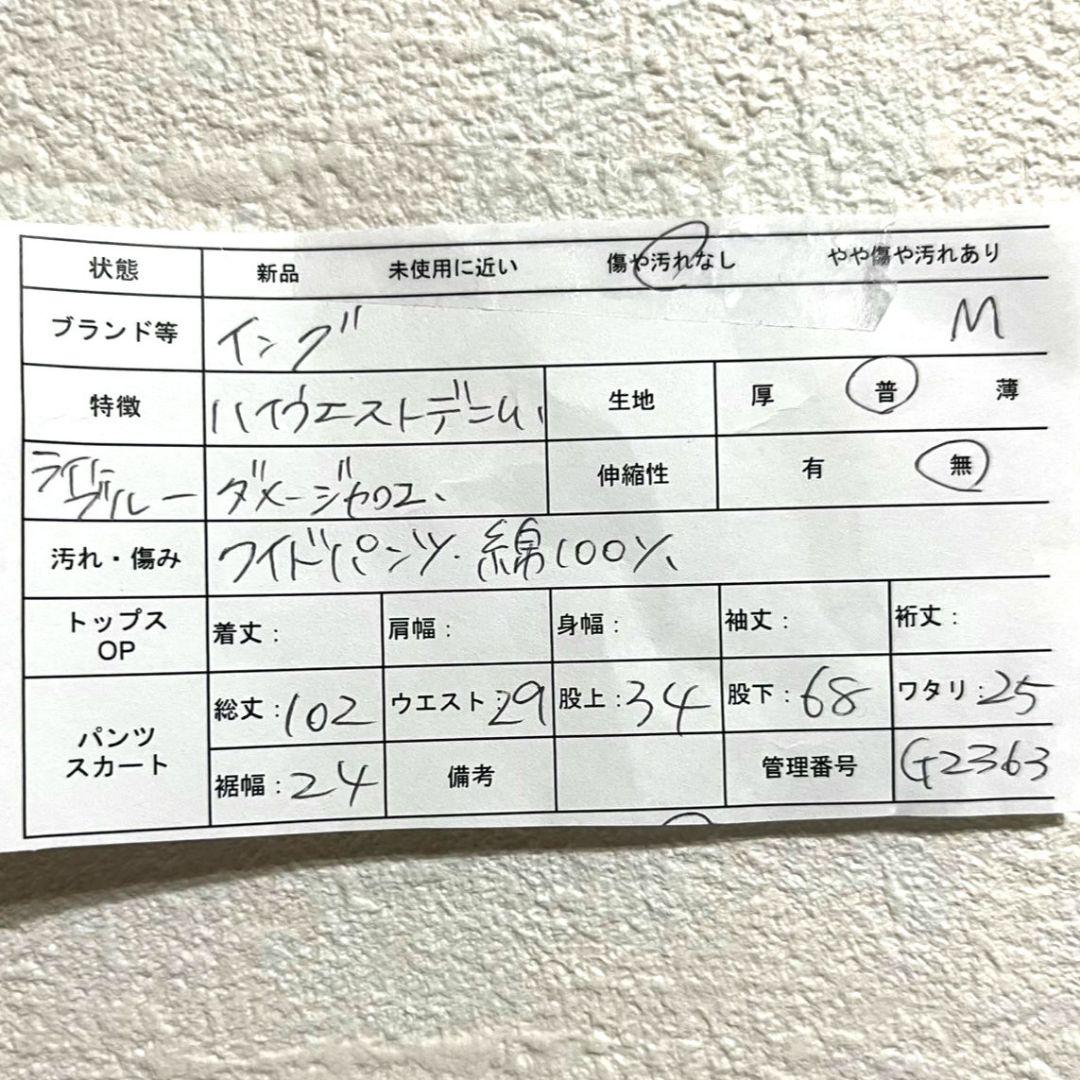 状態 新品 未使用に近い 傷や汚れなし やや傷や汚れあり
ブランド等 イング M
特徴 ハイウエストデニム、 生地 厚 普 薄
ライトブルー ダメージ加工、 伸縮性 有 無
汚れ・傷み ワイドパンツ.綿100%
トップス OP 着丈: 肩幅: 身幅: 袖丈: 裄丈:
パンツ スカート 総丈:102 ウエスト:29 股上:34 股下:68 ワタリ:25
裾幅:24 備考 管理番号 G2363